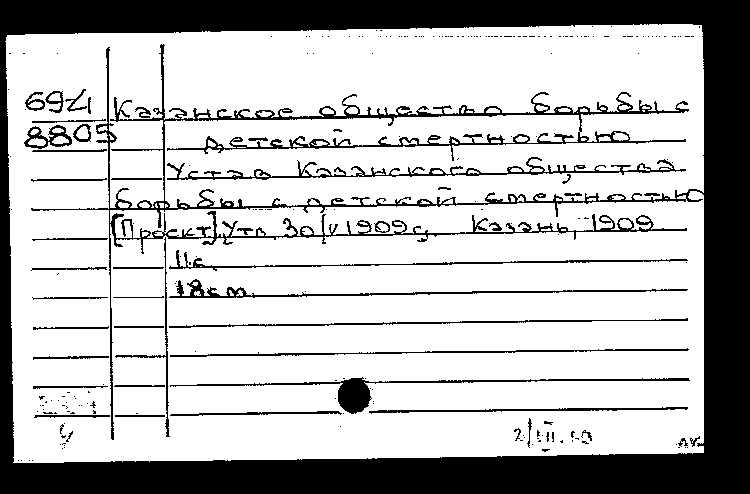 69-4 Казанское общество борьбы с
8805 детской смертностью
Устав Казанского общества
борьбы с детской смертностью
[Проект]. Утв. 30/V 1909 г. Казань, 1909
11 с.
18 см.
2/III.